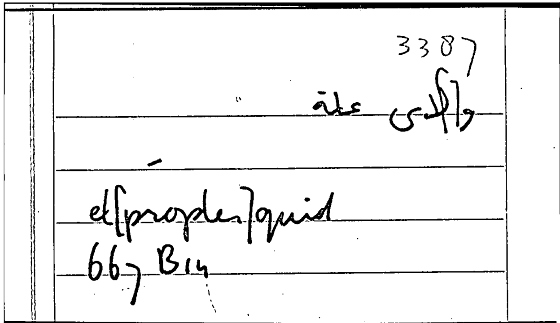 3387
و[لأى علة
et[propter]quid
667 B14